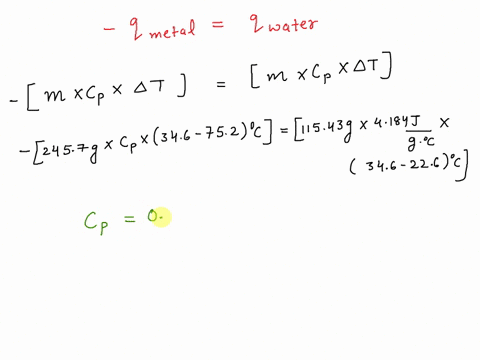 - q metal = q water
- [ m × Cp × ΔT ] = [ m × Cp × ΔT ]
- [245.7g × Cp × (34.6-75.2)°C] = [115.43g × 4.184J/g.°C ×
(34.6-22.6)°C]
Cp = 0.